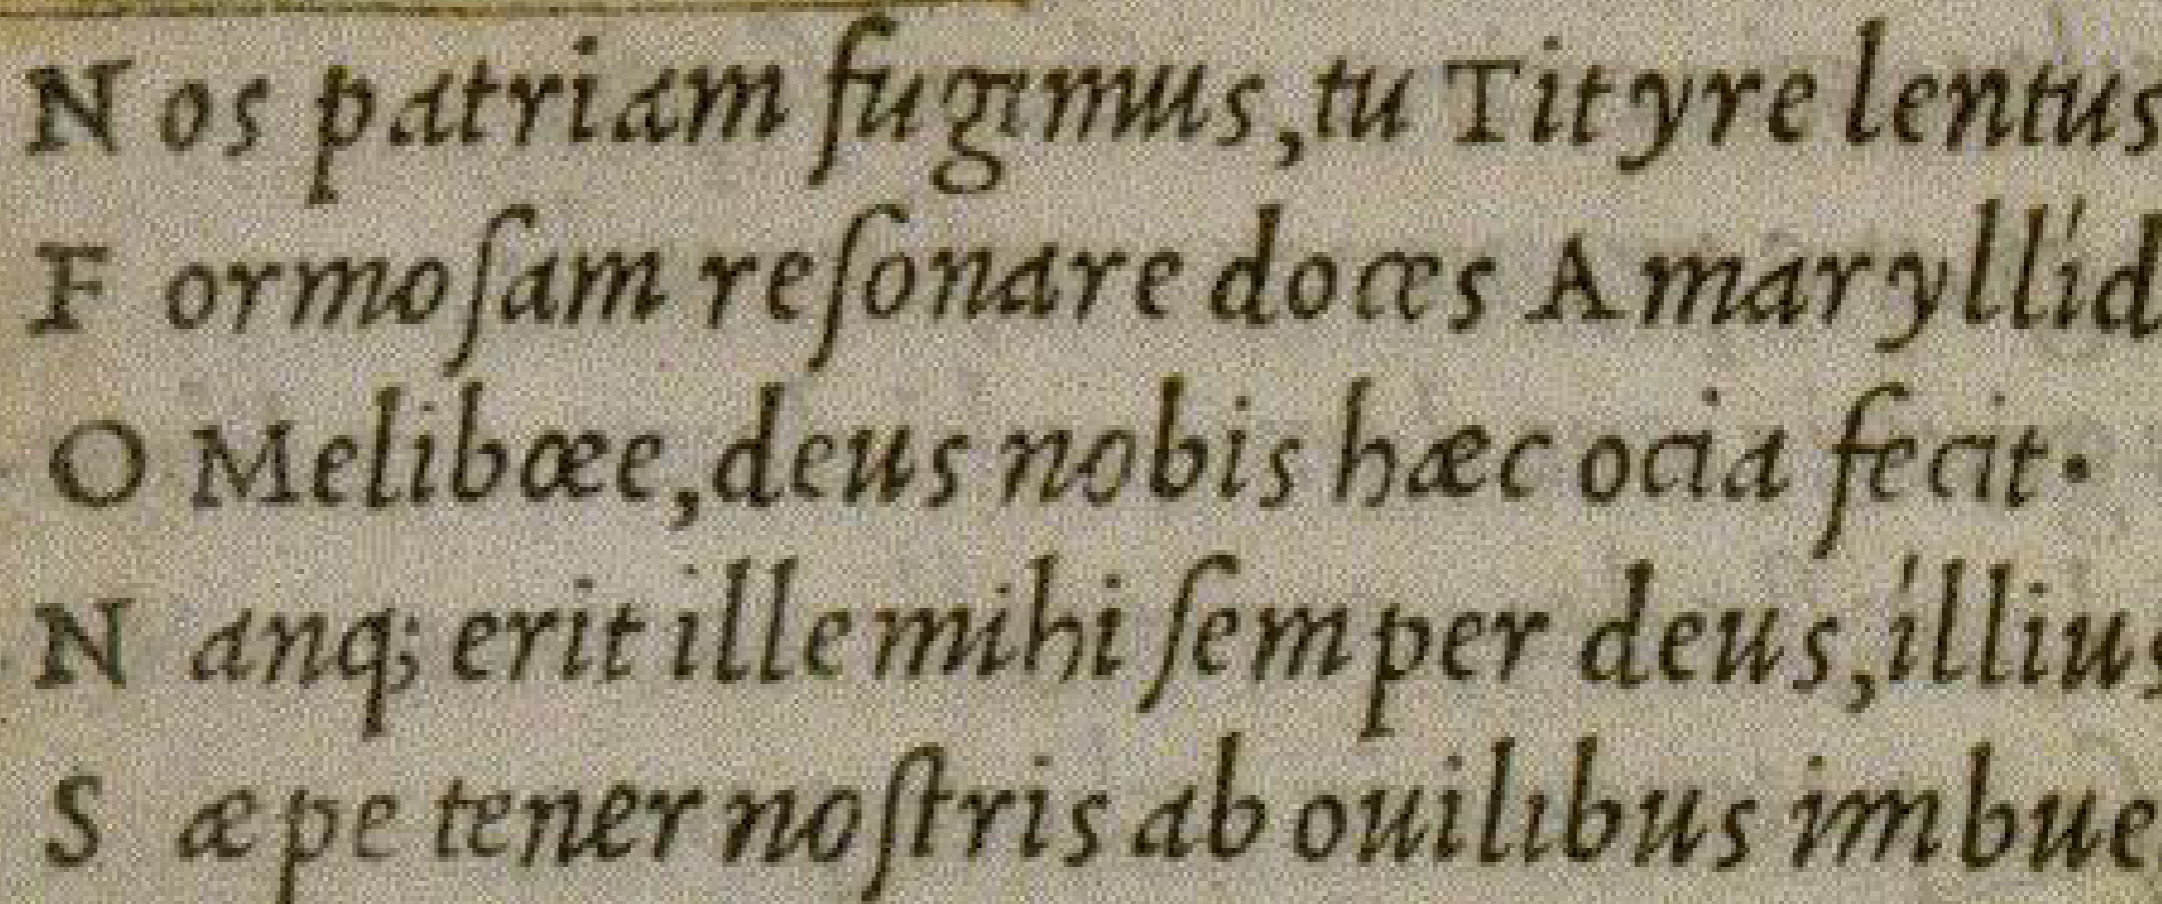 Nos patriam fugimus, tu Tityre lentus
Formoſam reſonare doces Amaryllid
O Melibœe, deus nobis hæc ocia fecit.
Nanq; erit ille mihi ſemper deus, illius
Sæpe tener noſtris ab ouilibus imbue